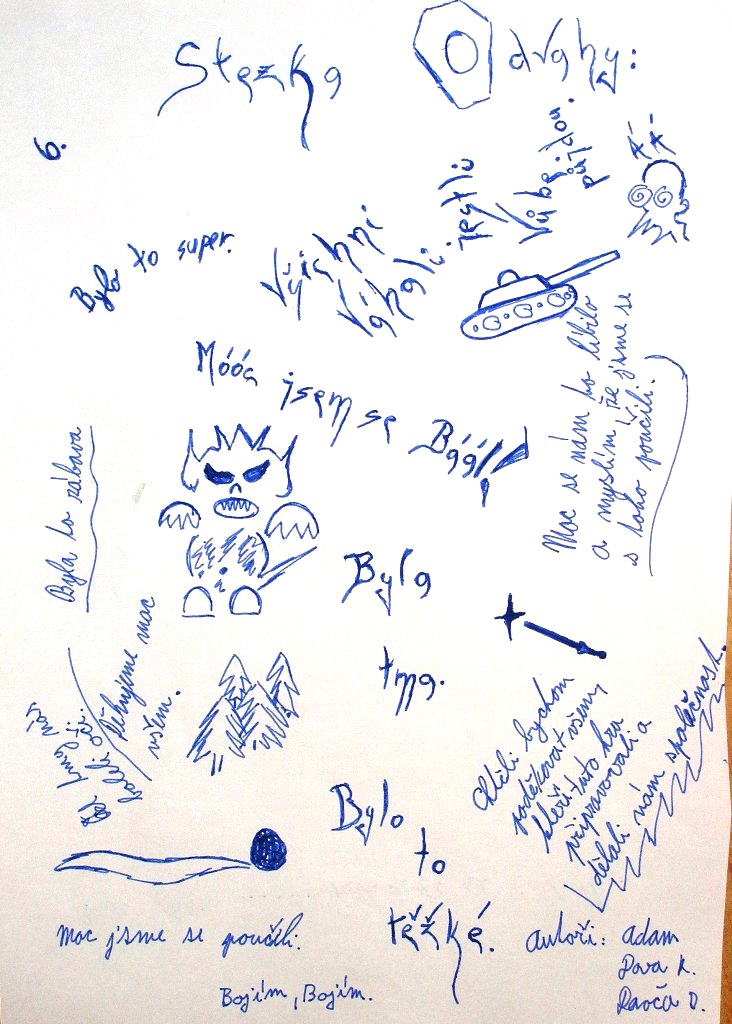 Stezka Odvahy:
6.
Byla to super.
Všichni
váhali.
jestli
Vůbec
půjdou.
Móóc jsem se Bááál!
Moc se nám to líbilo
a myslím že jsme se
s toho poučili.
Byla to zábava
Byla
tma.
Děkujeme moc
všem.
Od tmy nás
bolely oči.
Chtěli bychom
poděkovat všem,
kteří tuto hru
připravovali a
dělali nám společnost.
Bylo
to
těžké.
Moc jsme se poučili.
Bojím, Bojím.
autoři: Adam
Pava K.